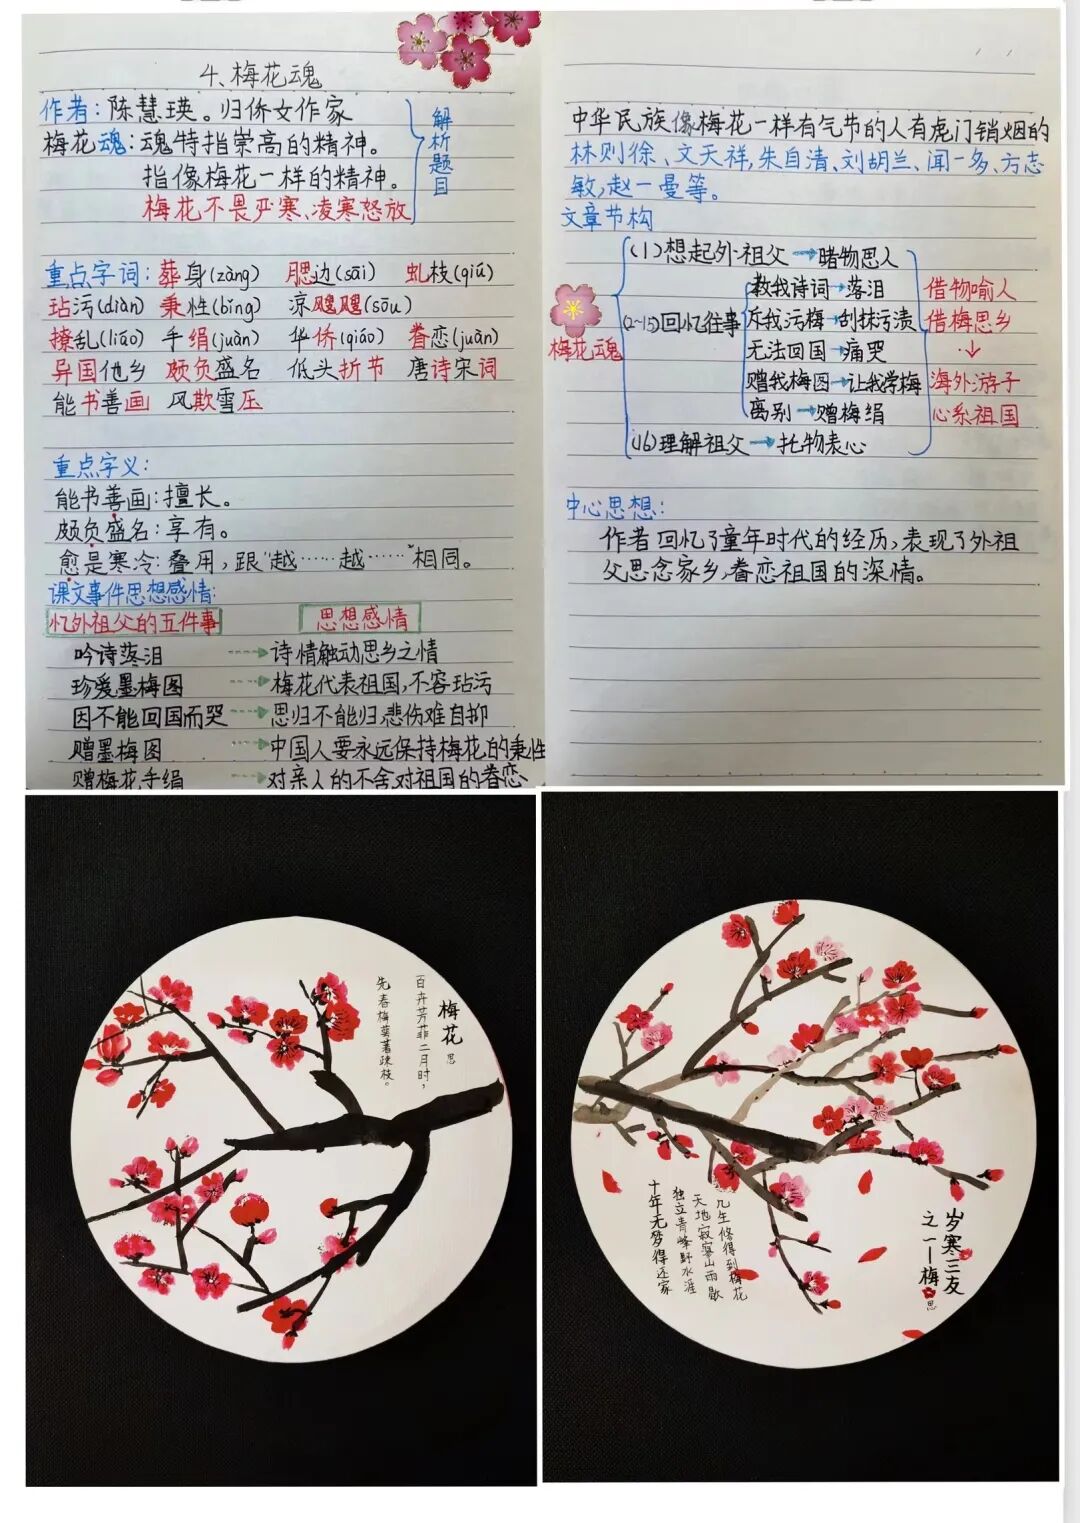 4、梅花魂
作者：陈慧瑛。归侨女作家
梅花魂：魂特指崇高的精神。
指像梅花一样的精神。
梅花不畏严寒、凌寒怒放
解析题目
重点字词：葬身(zàng) 腮边(sāi) 虬枝(qiú)
玷污(diàn) 秉性(bǐng) 凉飕飕(sōu)
撩乱(liáo) 手绢(juàn) 华侨(qiáo) 眷恋(juàn)
异国他乡 颇负盛名 低头折节 唐诗宋词
能书善画 风欺雪压
重点字义：
能书善画：擅长。
颇负盛名：享有。
愈是寒冷：叠用，跟“越……越……”相同。
课文事件思想感情：
忆外祖父的五件事 思想感情
吟诗落泪 诗情触动思乡之情
珍爱墨梅图 梅花代表祖国，不容玷污
因不能回国而哭 思归不能归，悲伤难自抑
赠墨梅图 中国人要永远保持梅花的秉性
赠梅花手绢 对亲人的不舍，对祖国的眷恋
中华民族像梅花一样有气节的人有虎门销烟的
林则徐、文天祥，朱自清、刘胡兰、闻一多、方志
敏，赵一曼等。
文章节构
梅花魂
(1)想起外祖父→睹物思人
(2~15)回忆往事
教我诗词→落泪
斥我污梅→刮抹污渍
无法回国→痛哭
赠我梅图→让我学梅
离别→赠梅绢
(16)理解祖父→托物表心
借物喻人
借梅思乡
↓
海外游子
心系祖国
中心思想：
作者回忆了童年时代的经历，表现了外祖
父思念家乡，眷恋祖国的深情。
梅花
思
百卉芳菲二月时，
先春梅萼著疎枝。
岁寒三友
之一——梅
思
几生修得到梅花
天地寂寥山雨歇
独立青峰野水涯
十年无梦得还家